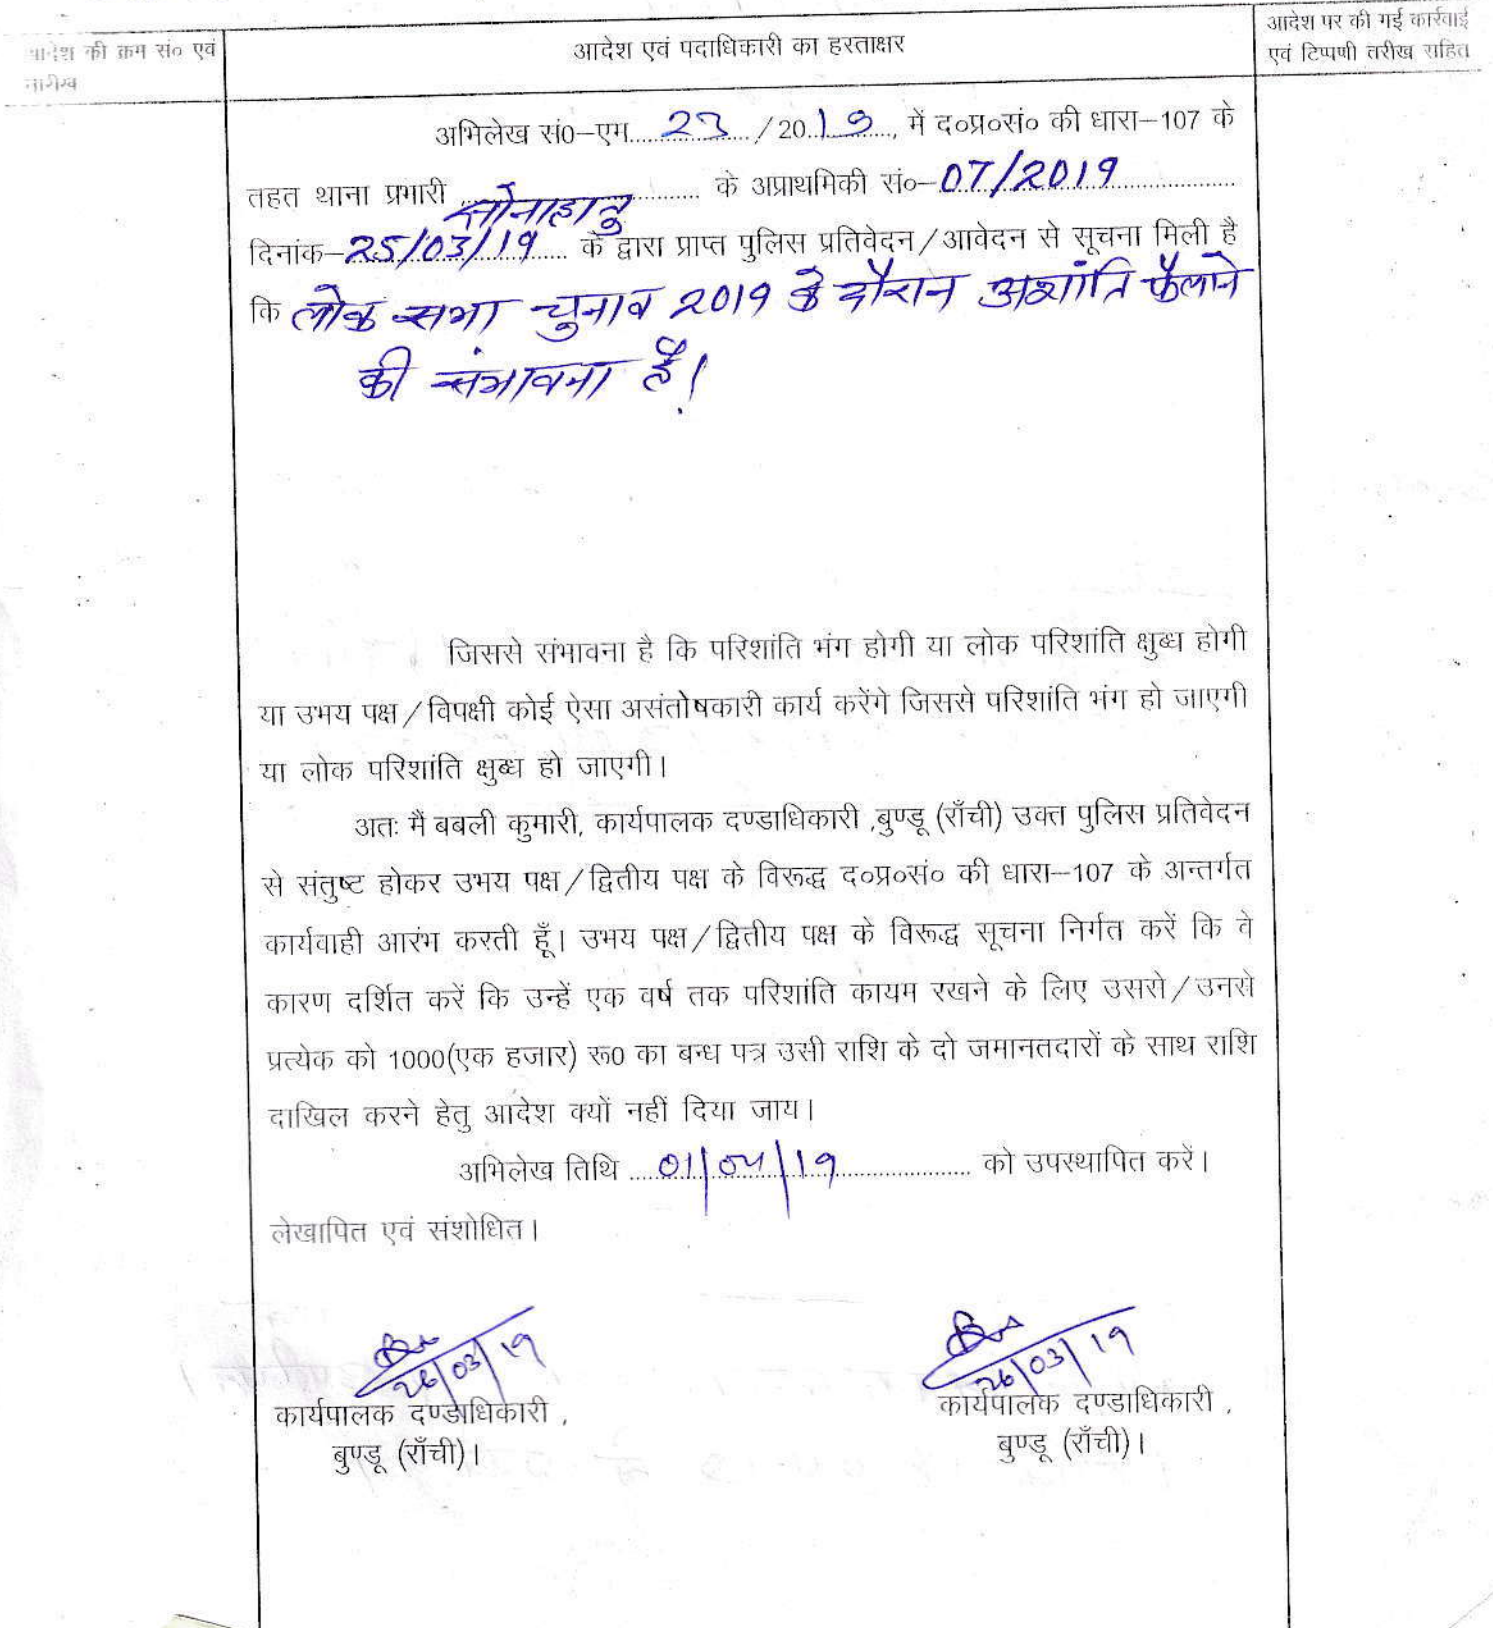 आदेश की क्रम सं० एवं
तारीख
आदेश एवं पदाधिकारी का हस्ताक्षर
आदेश पर की गई कार्रवाई
एवं टिप्पणी तरीख सहित
अभिलेख सं0–एम..... 23 ...../20..19...., में द०प्र०सं० की धारा–107 के
तहत थाना प्रभारी सोनाहातु के अप्राथमिकी सं०–07/2019
दिनांक–25/03/19 के द्वारा प्राप्त पुलिस प्रतिवेदन/आवेदन से सूचना मिली है
कि लोक सभा चुनाव 2019 के दौरान अशांति फैलाने
की संभावना है!
जिससे संभावना है कि परिशांति भंग होगी या लोक परिशांति क्षुब्ध होगी
या उभय पक्ष/विपक्षी कोई ऐसा असंतोषकारी कार्य करेंगे जिससे परिशांति भंग हो जाएगी
या लोक परिशांति क्षुब्ध हो जाएगी।
अतः मैं बबली कुमारी, कार्यपालक दण्डाधिकारी ,बुण्डू (राँची) उक्त पुलिस प्रतिवेदन
से संतुष्ट होकर उभय पक्ष/द्वितीय पक्ष के विरूद्ध द०प्र०सं० की धारा–107 के अन्तर्गत
कार्यवाही आरंभ करती हूँ। उभय पक्ष/द्वितीय पक्ष के विरूद्ध सूचना निर्गत करें कि वे
कारण दर्शित करें कि उन्हें एक वर्ष तक परिशांति कायम रखने के लिए उससे/उनसे
प्रत्येक को 1000(एक हजार) रू0 का बन्ध पत्र उसी राशि के दो जमानतदारों के साथ राशि
दाखिल करने हेतु आदेश क्यों नहीं दिया जाय।
अभिलेख तिथि ..... 01/04/19 ..... को उपस्थापित करें।
लेखापित एवं संशोधित।
26/03/19
26/03/19
कार्यपालक दण्डाधिकारी ,
कार्यपालक दण्डाधिकारी ,
बुण्डू (राँची)।
बुण्डू (राँची)।